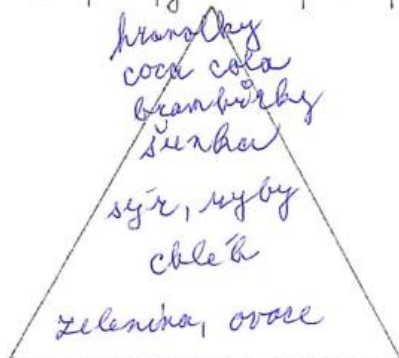 hranolky
coca cola
brambůrky
šunka
sýr, ryby
chléb
zelenina, ovoce